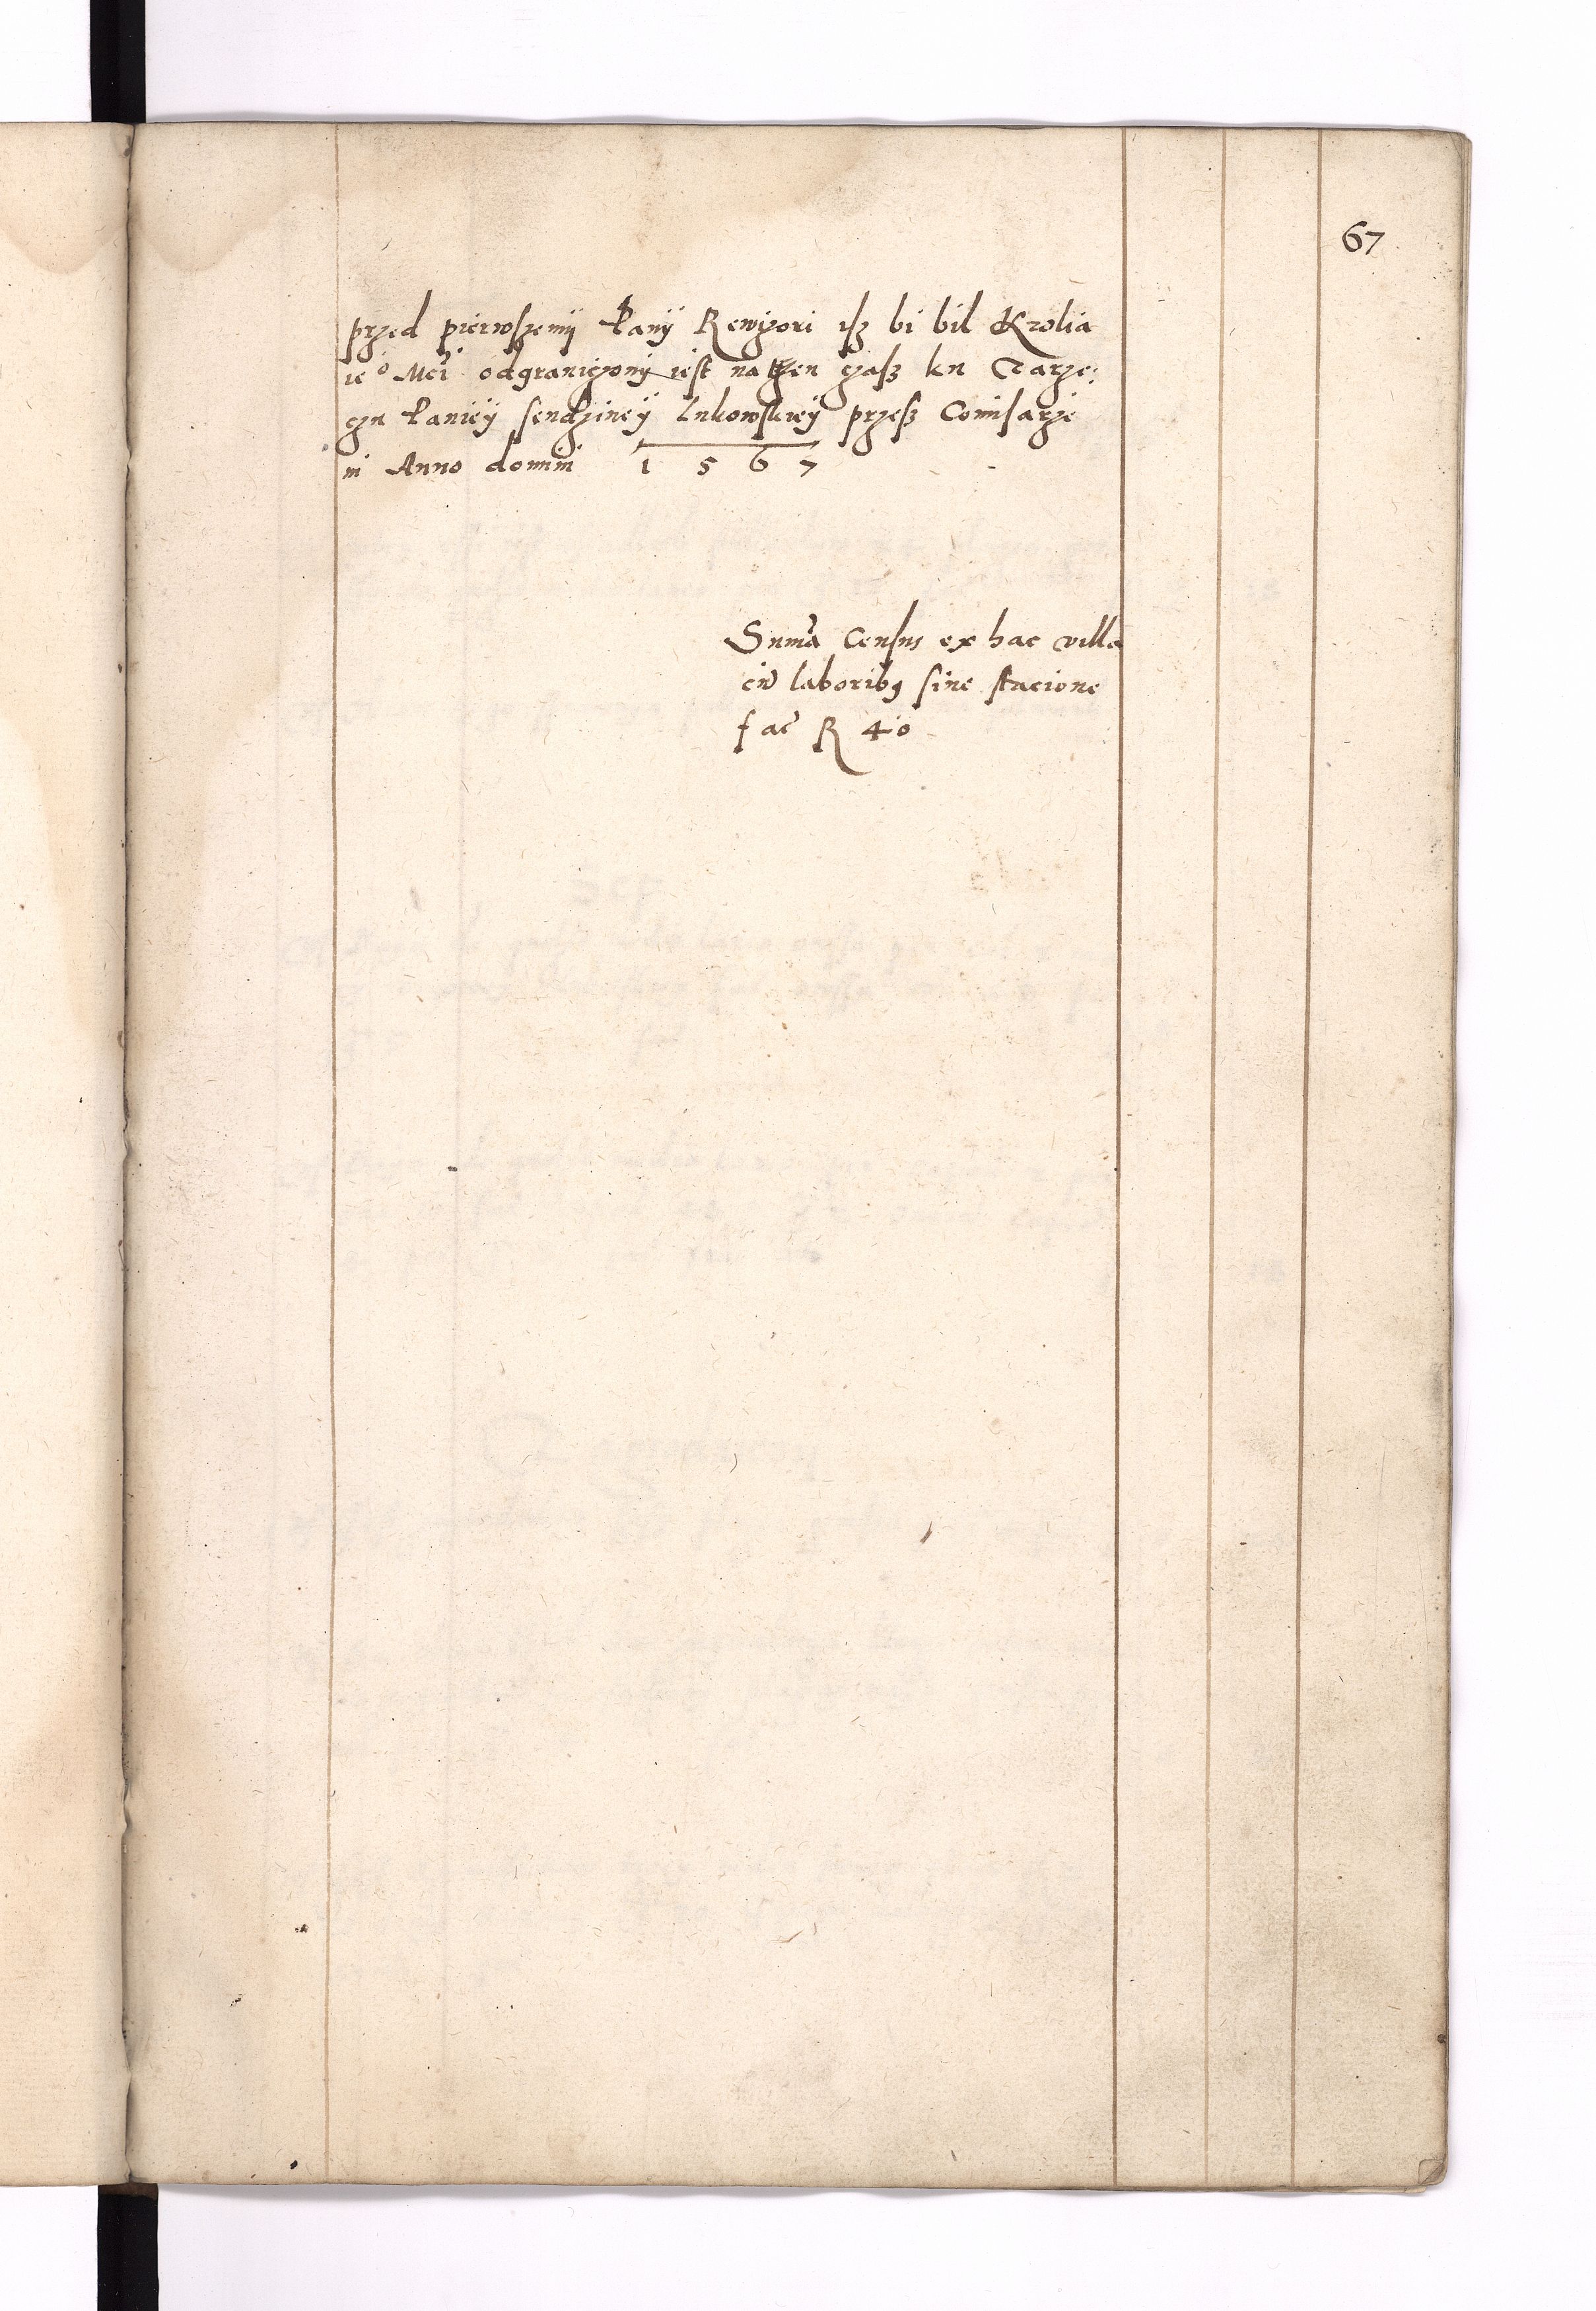 67
przed pierwszemy Pany Rewizori isz bi bil Krolia
ieo Mci odgraniczony iest na ten czasz ku Tarze:
czu Paniey sendziney Lukowskiey przesz Comisarze
in Anno domini 1567
Suma Census ex hac villa
cu laboribus sine stacione
fac R 40